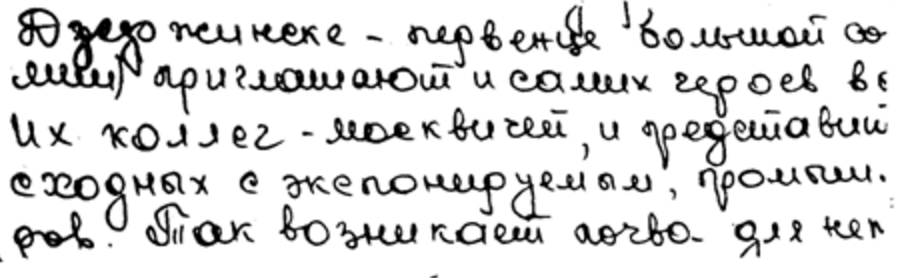 Дзержинске - первенце большой хи
мии) приглашают и самих героев вс
их коллег - москвичей, и представи
сходных с экспонируемым, промыш.
ров. Так возникает почва для неп